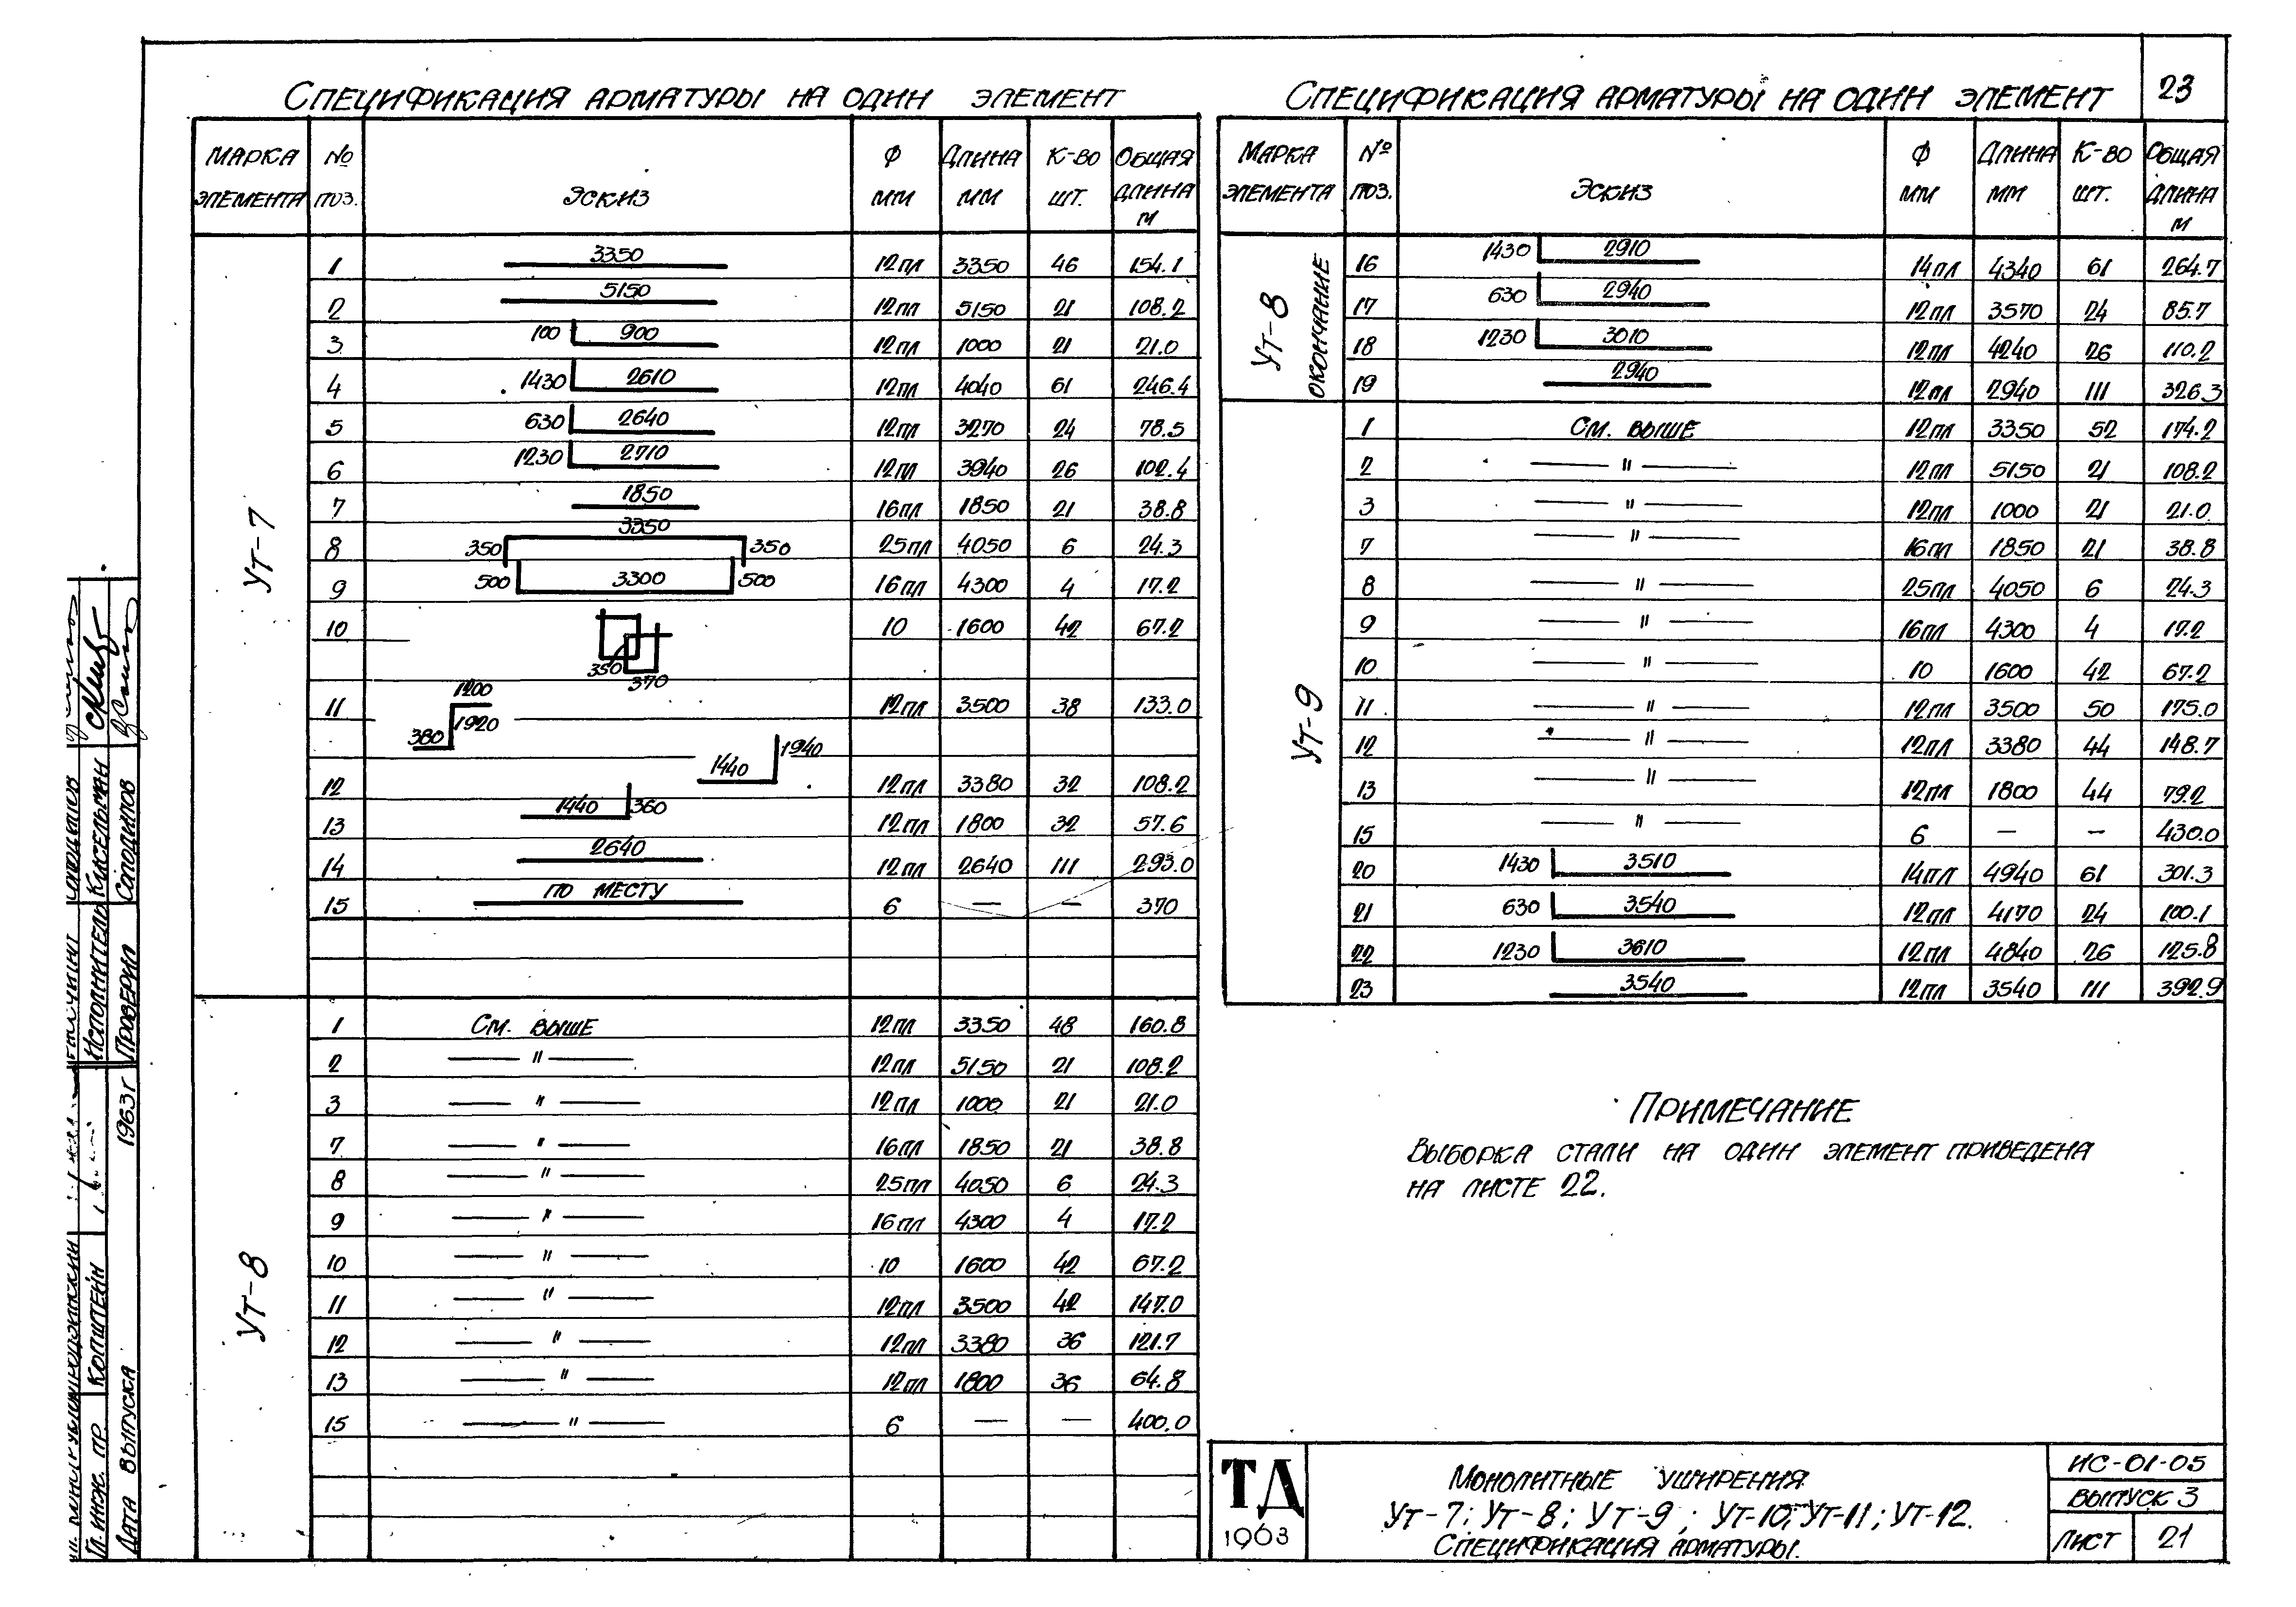 23
Спецификация арматуры на один элемент
Марка элемента № поз. Эскиз Ф мм Длина мм К-во шт. Общая длина м
Ут-7
1 3350 12пл 3350 46 154.1
2 5150 12пл 5150 21 108.2
3 100 900 12пл 1000 21 21.0
4 1430 2610 12пл 4040 61 246.4
5 630 2640 12пл 3270 24 78.5
6 1230 2710 12пл 3940 26 102.4
7 1850 16пл 1850 21 38.8
8 350 3350 350 25пл 4050 6 24.3
9 500 3300 500 16пл 4300 4 17.2
10 350 370 10 1600 42 67.2
11 1200 1920 380 12пл 3500 38 133.0
12 1440 1940 12пл 3380 32 108.2
13 1440 360 12пл 1800 32 57.6
14 2640 12пл 2640 111 293.0
15 по месту 6 — — 370
Ут-8
1 См. выше 12пл 3350 48 160.8
2 — " — 12пл 5150 21 108.2
3 — " — 12пл 1000 21 21.0
7 — " — 16пл 1850 21 38.8
8 — " — 25пл 4050 6 24.3
9 — " — 16пл 4300 4 17.2
10 — " — 10 1600 42 67.2
11 — " — 12пл 3500 42 147.0
12 — " — 12пл 3380 36 121.7
13 — " — 12пл 1800 36 64.8
15 — " — 6 — — 400.0
Спецификация арматуры на один элемент
Марка элемента № поз. Эскиз Ф мм Длина мм К-во шт. Общая длина м
Ут-8 окончание
16 1430 2910 14пл 4340 61 264.7
17 630 2940 12пл 3570 24 85.7
18 1230 3010 12пл 4240 26 110.2
19 2940 12пл 2940 111 326.3
Ут-9
1 См. выше 12пл 3350 52 174.2
2 — " — 12пл 5150 21 108.2
3 — " — 12пл 1000 21 21.0
7 — " — 16пл 1850 21 38.8
8 — " — 25пл 4050 6 24.3
9 — " — 16пл 4300 4 17.2
10 — " — 10 1600 42 67.2
11 — " — 12пл 3500 50 175.0
12 — " — 12пл 3380 44 148.7
13 — " — 12пл 1800 44 79.2
15 — " — 6 — — 430.0
20 1430 3510 14пл 4940 61 301.3
21 630 3540 12пл 4170 24 100.1
22 1230 3610 12пл 4840 26 125.8
23 3540 12пл 3540 111 392.9
Примечание
Выборка стали на один элемент приведена
на листе 22.
ТД
1963
Монолитные уширения
Ут-7; Ут-8; Ут-9; Ут-10; Ут-11; Ут-12.
Спецификация арматуры.
ИС-01-05
Выпуск 3
Лист 21
Гл. инж. пр. Копштейн
Исполнитель Кисельман
Дата выпуска 1963г
Проверил Солодилов